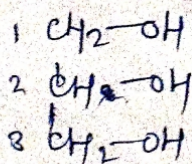 1 CH2—OH
2 CH—OH
3 CH2—OH